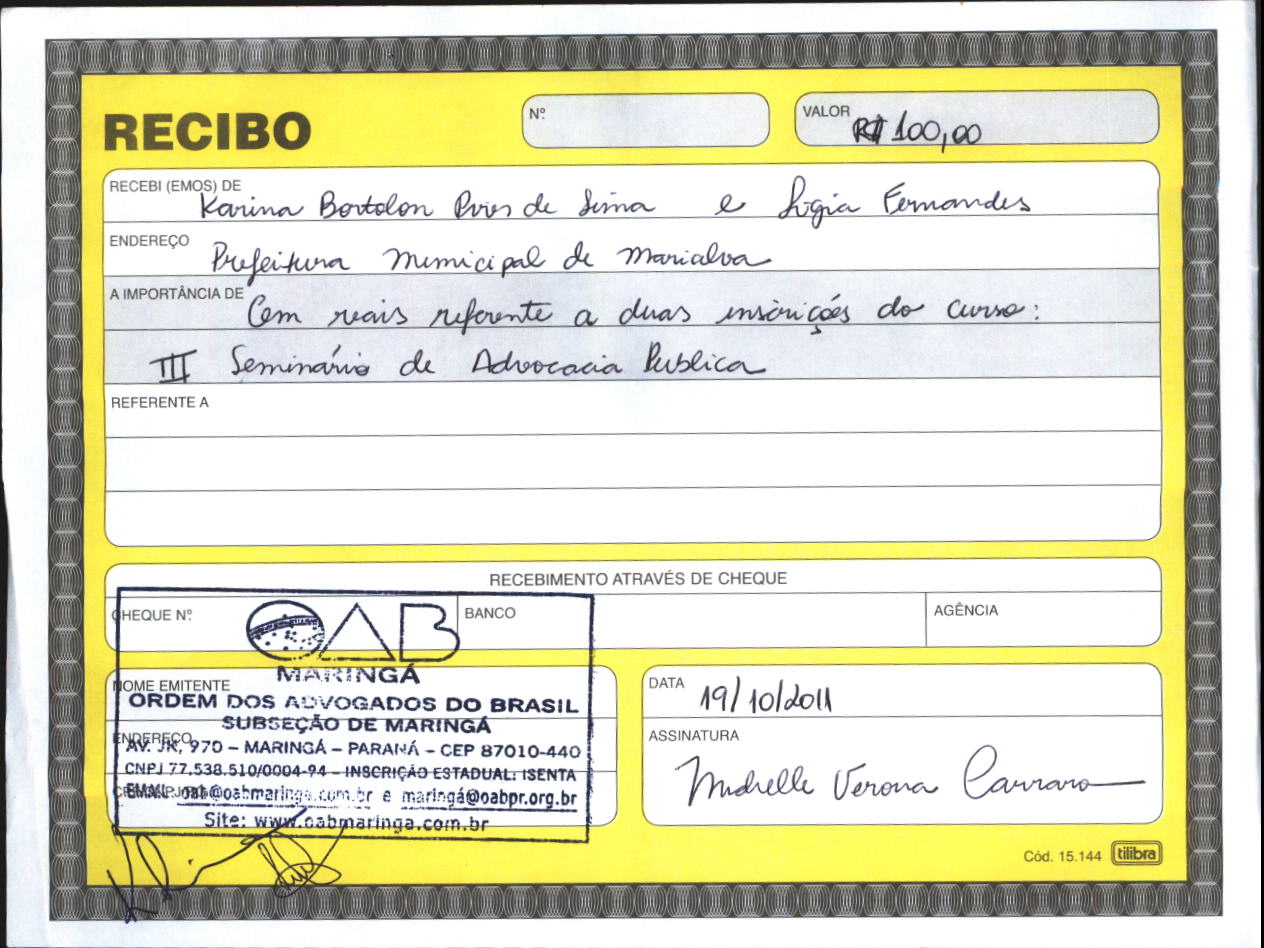 RECIBO
Nº
VALOR R$ 100,00
RECEBI (EMOS) DE Karina Bortolon Pires de Lima e Lígia Fernandes
ENDEREÇO Prefeitura Municipal de Marialva
A IMPORTÂNCIA DE Cem reais referente a duas inscrições do curso:
III Seminário de Advocacia Publica
REFERENTE A
RECEBIMENTO ATRAVÉS DE CHEQUE
CHEQUE Nº
BANCO
AGÊNCIA
OAB
MARINGÁ
NOME EMITENTE
ORDEM DOS ADVOGADOS DO BRASIL
SUBSEÇÃO DE MARINGÁ
ENDEREÇO
AV. JK, 970 – MARINGÁ – PARANÁ – CEP 87010-440
CNPJ 77.538.510/0004-94 – INSCRIÇÃO ESTADUAL: ISENTA
EMAIL: oab@oabmaringa.com.br e maringá@oabpr.org.br
Site: www.oabmaringa.com.br
DATA 19/10/2011
ASSINATURA
Michelle Verona Carraro
Cód. 15.144 tilibra